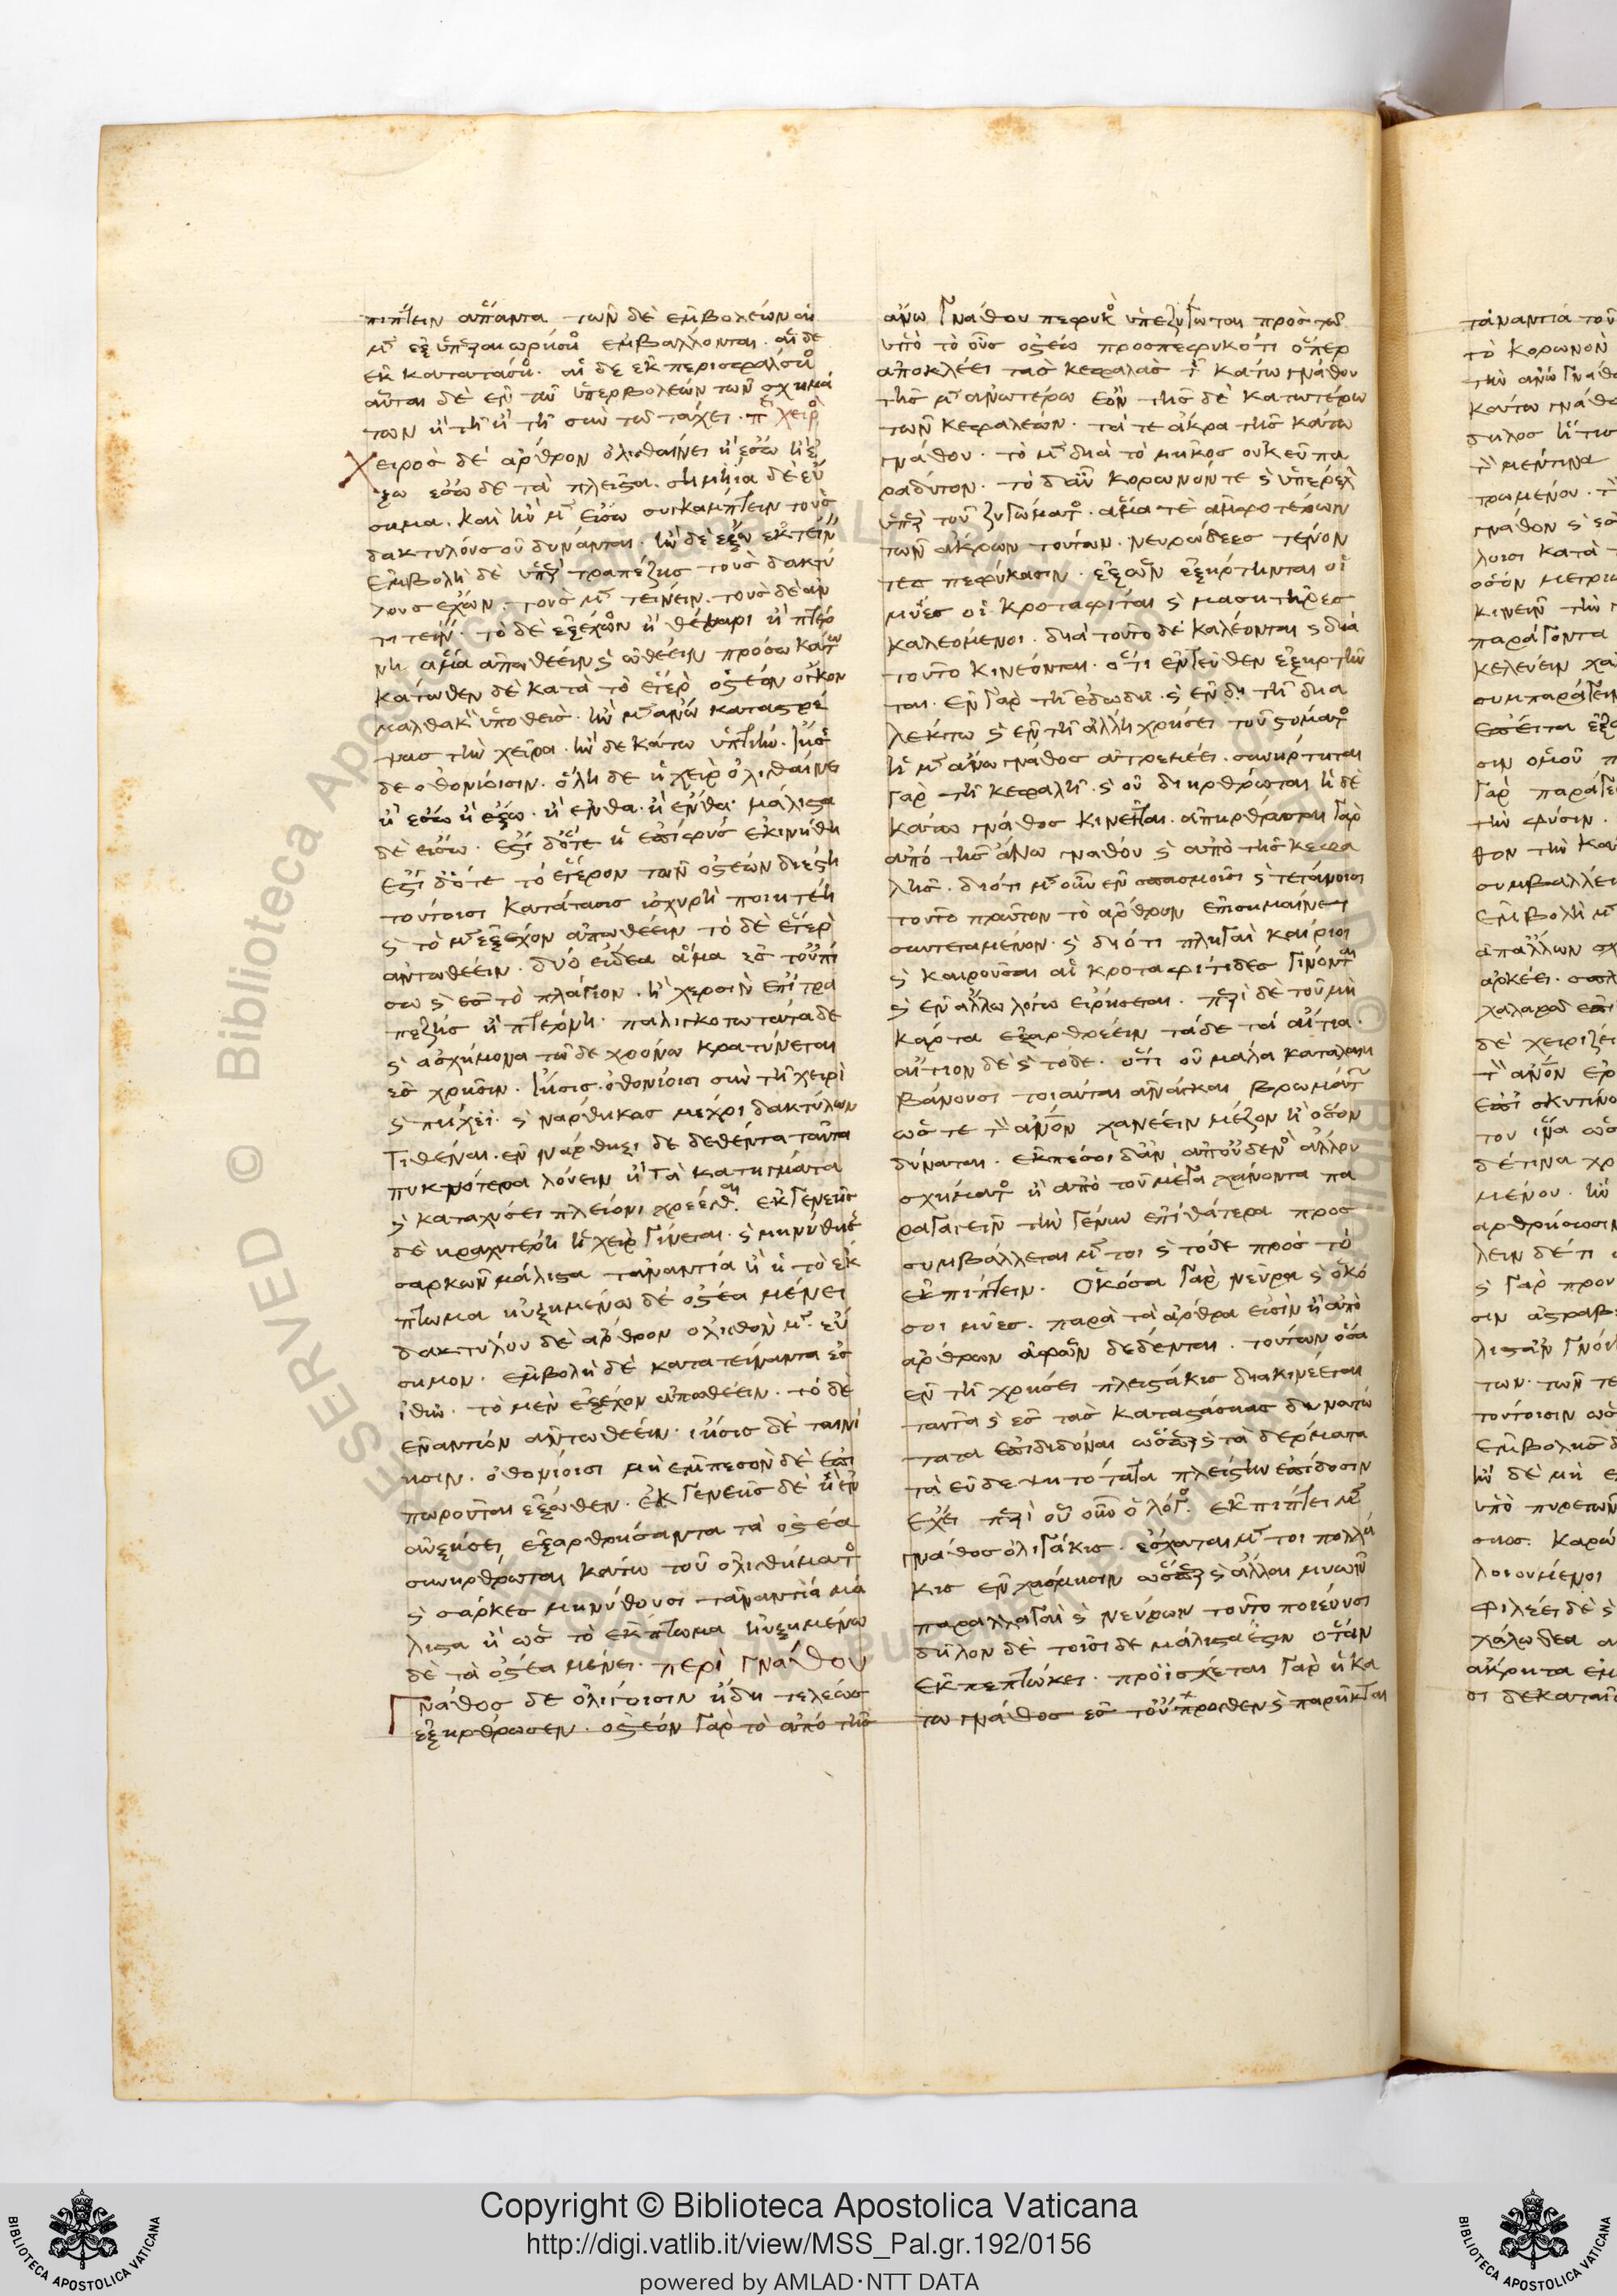 πιπτειν ἅπαντα τῶν δὲ ἐμβολέων αἱ
μὲν ἐξ ὑπεραιωρήσιος ἐμβάλλονται. αἱ δὲ
ἐκ κατατάσιος. αἱ δὲ ἐκ περισφαλσιος
αὗται δὲ ἐν τῶν ὑπερβολέων τῶν σχημά
των ἢ τῇ ἢ τῇ σὺν τῶ τάχει. π χειρὸς
Χειρὸς δὲ ἄρθρον ὀλισθαίνει ἢ ἔσω ἢ ἔ
ξω ἔσω δὲ τὰ πλεῖστα. σημήϊα δὲ εὔ
σημα. καὶ ἢν μὲν εἴσω συγκάμπτειν τοὺς
δακτύλους οὐ δύνανται. ἢν δὲ ἔξω ἐκτείνειν
ἐμβολὴ δὲ ὑπὲρ τραπέζης τοὺς δακτύ
λους ἔχων. τοὺς μὲν τείνειν. τοὺς δὲ ἀν
τιτείνειν. τὸ δὲ ἐξέχον ἢ θέναρι ἢ πτέρ
νη ἅμα ἀπωθέειν ϛ ὠθέειν πρόσω κάτω
κάτωθεν δὲ κατὰ τὸ ἕτερον ὀστέον ὄγκον
μαλθακὸν ὑποθείς. ἢν μὲν ἄνω καταστρέ
ψας τὴν χεῖρα. ἢν δὲ κάτω ὑπτίην. ἴησις
δὲ ὀθονίοισιν. ὅλη δὲ ἡ χεὶρ ὀλισθαίνει
ἢ ἔσω ἢ ἔξω. ἢ ἔνθα. ἢ ἔνθα. μάλιστα
δὲ εἴσω. ἔστι δ' ὅτε ἡ ἐπίφυσις ἐκινήθη
ἔστι δ' ὅτε τὸ ἕτερον τῶν ὀστέων διέστη
τούτοισι κατάτασις ἰσχυρὴ ποιητέη
ϛ τὸ μὲν ἐξέχον ἀπωθέειν τὸ δὲ ἕτερον
ἀντωθέειν. δύο εἴδεα ἅμα ἐς τοὐπί
σω ϛ ἐς τὸ πλάγιον. ἢ χερσὶν ἐπὶ τρα
πέζης ἢ πτέρνη. παλιγκοτώτατα δὲ
ϛ ἀσχήμονα τῶ δὲ χρόνω κρατύνεται
ἐς χρῆσιν. ἴησις ὀθονίοισι σὺν τῇ χειρὶ
ϛ πήχεϊ. ϛ νάρθηκας μέχρι δακτύλων
τιθέναι. ἐν νάρθηξι δὲ δεθέντα ταῦτα
πυκνότερα λύειν ἢ τὰ κατήγματα
ϛ καταχύσει πλείονι χρέεσθαι. ἐκ γενεῆς
δὲ βραχυτέρη ἡ χεὶρ γίνεται. ϛ μινύθησις
σαρκῶν μάλιστα τἀναντία ἢ ἢ τὸ ἔκ
πτωμα ηὐξημένω δὲ ὀστέα μένει
δακτύλου δὲ ἄρθρον ὀλισθὸν μὲν εὔ
σημον. ἐμβολὴ δὲ κατατείναντα ἐς
ἰθὺ. τὸ μὲν ἐξέχον ἀπωθέειν. τὸ δὲ
ἐναντίον ἀντωθέειν. ἴησις δὲ ταινί
ησιν. ὀθονίοισι μὴ ἐμπεσὸν δὲ ἐπι
πωροῦται ἔξωθεν. ἐκ γενεῆς δὲ ἢ ἐν
αὐξήσει ἐξαρθρήσαντα τὰ ὀστέα
συνηρθρωται κάτω τοῦ ὀλισθήματος
ϛ σάρκες μινύθουσι τἀναντία μά
λιστα ἢ ὡς τὸ ἔκπτωμα ηὐξημένω
δὲ τὰ ὀστέα μένει. περὶ γνάθου
Γνάθος δὲ ὀλίγοισιν ἤδη τελέως
ἐξηρθρωσεν. ὀστέον γὰρ τὸ ἀπὸ τῆς
ἄνω γνάθου πεφυκὸς ὑπεζύγωται πρὸς τῶ
ὑπὸ τὸ οὖς ὀστέω προσπεφυκότι ὅπερ
ἀποκλέει τὰς κεφαλὰς τῆς κάτω γνάθου
τῆς μὲν ἀνωτέρω ἐὸν τῆς δὲ κατωτέρω
τῶν κεφαλέων. τά τε ἄκρα τῆς κάτω
γνάθου. τὸ μὲν διὰ τὸ μῆκος οὐκ εὐπα
ράδυτον. τὸ δ' αὖ κορωνόν τε ϛ ὑπερέχον
ὑπὲρ τοῦ ζυγώματος. ἅμα τὲ ἀμφοτέρων
τῶν ἄκρων τούτων. νευρώδεες τένον
τες πεφύκασιν. ἐξ ὧν ἐξήρτηνται οἱ
μύες οἱ κροταφῖται ϛ μασητῆρες
καλεόμενοι. διὰ τοῦτο δὲ καλέονται ϛ διὰ
τοῦτο κινέονται. ὅτι ἐντεῦθεν ἐξήρτην
ται. ἐν γὰρ τῇ ἐδωδῇ. ϛ ἐν δὴ τῇ δια
λέκτω ϛ ἐν τῇ ἄλλη χρήσει τοῦ στόματος
ἡ μὲν ἄνω γνάθος ἀτρεμέει. συνήρτηται
γὰρ τῇ κεφαλῇ. ϛ οὐ διηρθρωται ἡ δὲ
κάτω γνάθος κινεῖται. ἀπήρθρωται γὰρ
ἀπὸ τῆς ἄνω γνάθου ϛ ἀπὸ τῆς κεφα
λῆς. διότι μὲν οὖν ἐν σπασμοῖσι ϛ τετάνοισι
τοῦτο πρῶτον τὸ ἄρθρον ἐπισημαίνει
συντεταμένον. ϛ διότι πληγαὶ καίριοι
ϛ καροῦσαι αἱ κροταφίτιδες γίνονται
ϛ ἐν ἄλλω λόγω εἰρήσεται. περὶ δὲ τοῦ μὴ
κάρτα ἐξαρθρέειν τάδε τὰ αἴτια.
αἴτιον δὲ ϛ τόδε. ὅτι οὐ μάλα καταλαμ
βάνουσι τοιαῦται ἀνάγκαι βρωμάτων
ὥστε τὸν ἄνον χανέειν μέζον ἢ ὅσον
δύναται. ἐκπέσοι δ' ἂν ἀπ' οὐδενὸς ἄλλου
σχήματος ἢ ἀπὸ τοῦ μέγα χανόντα πα
ραγαγεῖν τὴν γένυν ἐπὶ θάτερα προσ
συμβάλλεται μέν τοι ϛ τόδε πρὸς τὸ
ἐκπίπτειν. Ὁκόσα γὰρ νεῦρα ϛ ὁκό
σοι μύες. παρὰ τὰ ἄρθρα εἰσὶν ἢ ἀπὸ
ἄρθρων ἀφ' ὧν δέδενται. τούτων ὅσα
ἐν τῇ χρήσει πλειστάκις διακινέεται
ταῦτα ϛ ἐς τὰς κατατάσιας δυνατώ
τατα ἐπιδιδόναι ὥσπερ ϛ τὰ δέρματα
τὰ εὐδεψητότατα πλείστην ἐπίδοσιν
ἔχει περὶ οὗ οὖν ὁ λόγος. ἐκπίπτει μὲν
γνάθος ὀλιγάκις. ἔσχαται μέν τοι πολλά
κις ἐν χάσμησιν ὥσπερ ϛ ἄλλαι μυῶν
παραλλαγαὶ ϛ νεύρων τοῦτο ποιεῦσι
δῆλον δὲ τοῖσι δὲ μάλιστα ἐστιν ὅταν
ἐκπεπτώκει. προΐσχεται γὰρ ἡ κά
τω γνάθος ἐς τοὔμπροσθεν ϛ παρῆκται
τἀναντία τοῦ
τὸ κορωνὸν
τὴν ἄνω γνάθο
κάτω γνάθο
δῆλος ἥτις
μέν τινα
τρωμένου.
γνάθον ϛ ἐσ
λοισι κατὰ
ὅσον μετρίω
κινεῖν τὴν
παράγοντα
κελεύειν χα
συμπαράγειν
ἐπέϊτα ἐξα
σιν ὁμοῦ π
γὰρ παράγε
τὴν φύσιν.
θον τὴν κα
συμβάλλει
ἐμβολὴ μὲν
ἀπ' ἄλλων σχ
ἀρκέει. σπλ
χαλαρῶ ἐπι
δὲ χειρίζει
ἄνον ἐρ
ἐπὶ σκυτίνο
τον ἵνα ὡς
δέ τινα χρ
μένου. ἢν
αρθρήσωσιν
λειν δέ τι
ϛ γὰρ πρου
σιν ἀστραβ
λιστ' ἂν γνοί
των. τῶν τε
τούτοισιν ὡς
ἐμβολῆς δ
ἢν δὲ μὴ ἐ
ὑπὸ πυρετῶν
σιος. καρώ
λοιούμενοι
φιλέει δὲ ϛ
χολώδεα
ἄκρητα ἐμ
σι δεκαταῖ
Copyright © Biblioteca Apostolica Vaticana
http://digi.vatlib.it/view/MSS_Pal.gr.192/0156
powered by AMLAD·NTT DATA
BIBLIOTECA APOSTOLICA VATICANA
BIBLIOTECA APOSTOLICA VATICANA